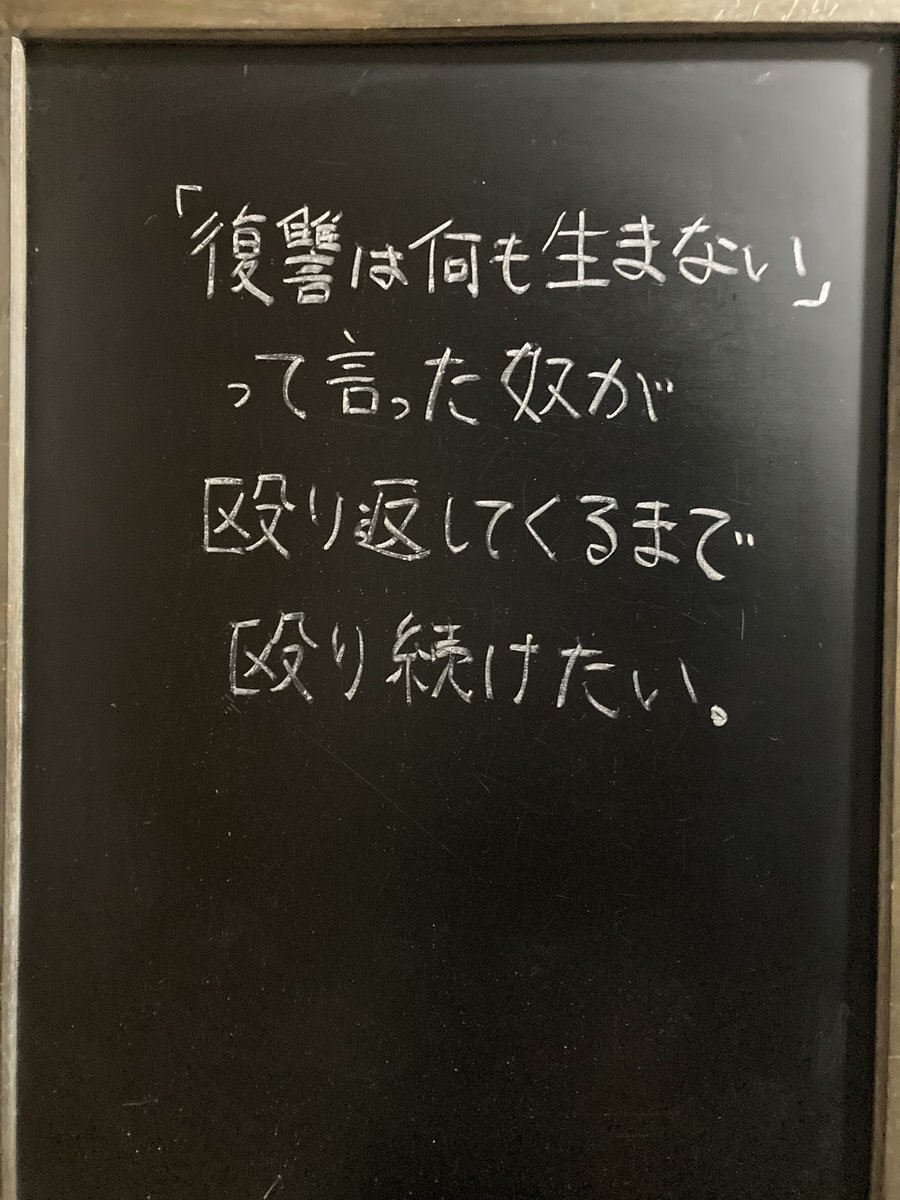 「復讐は何も生まない」
って言った奴が
殴り返してくるまで
殴り続けたい。